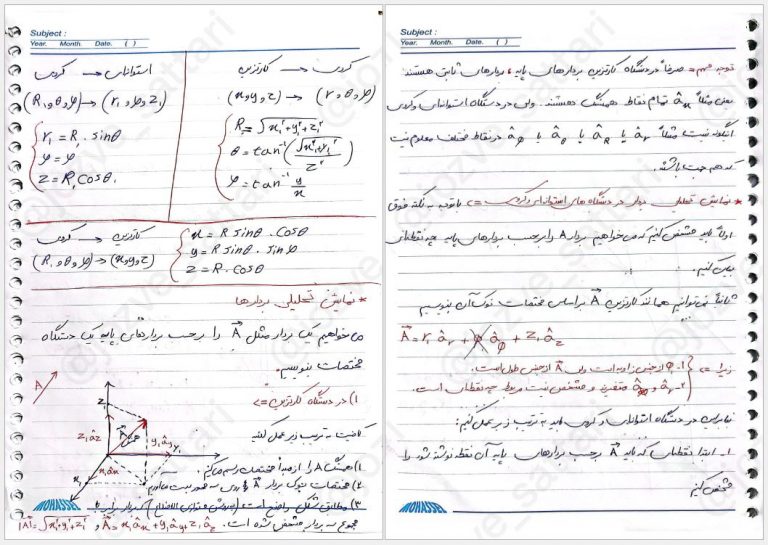 Subject :
Year. Month. Date. ( )
کروی ← کارتزین
(x, y, z) → (r, θ, φ)
R₁ = √x₁² + y₁² + z₁²
θ = tan⁻¹ (√x₁² + y₁² / z²)
φ = tan⁻¹ y/x
استوانه‌ای ← کروی
(R₁, θ, φ) → (r₁, φ, z₁)
r₁ = R₁ . sinθ
φ = φ
z = R₁ cosθ₁
کارتزین ← کروی
(R, θ, φ) → (x, y, z)
x = R sinθ . cosθ
y = R sinθ . sinφ
z = R . cosθ
* نمایش تحلیلی بردارها
می خواهیم یک بردار مثل A را بر حسب بردارهای پایه یک دستگاه
مختصات بنویسیم.
۱) در دستگاه کارتزین =>
کافیست به ترتیب زیر عمل کنید
۱) همسنگ A را از مبدأ مختصات رسم می‌کنیم.
۲) مختصات نوک بردار A را
۳) مطابق شکل واضح است
مجموع سه بردار مشخص شده است. A = x₁ âx + y₁ ây + z₁ âz و |A| = √x₁² + y₁² + z₁²
A
z₁
z₁ âz
A
همسنگ
y₁ ây
y₁
x₁ âx
x₁
MOHASSEL
Subject :
Year. Month. Date. ( )
توجه مهم = صرفاً در دستگاه کارتزین بردارهای پایه، بردارهای ثابتی هستند.
یعنی مثلاً âx تمام نقاط همسنگ هستند. ولی در دستگاه استوانه‌ای و کروی
اینگونه نیست مثلاً âr یا âR یا âθ یا âφ در نقاط مختلف معلوم نیست
که هم جهت باشند.
* نمایش تحلیلی بردار در دستگاه های استوانه‌ای و کروی => با توجه به نکته فوق
اولاً باید مشخص کنیم که می خواهیم بردار A را بر حسب بردارهای پایه چه نقطه‌ای
بیان کنیم.
ثانیاً نمی‌توانیم همانند کارتزین A بر اساس مختصات نوک آن بنویسیم
A = r₁ âr + φ âφ + z₁ âz
زیرا => ۱- φ از جنس زاویه است ولی A از جنس طول است.
۲- âr و âφ متغیرند و مشخص نیست مربوط به چه نقطه‌ای است.
بنابراین در دستگاه استوانه‌ای و کروی باید به ترتیب زیر عمل کنیم:
۱- ابتدا نقطه‌ای که باید A بر حسب بردارهای پایه آن نقطه نوشته شود را
مشخص کنیم
MOHASSEL
@jozve_sattari